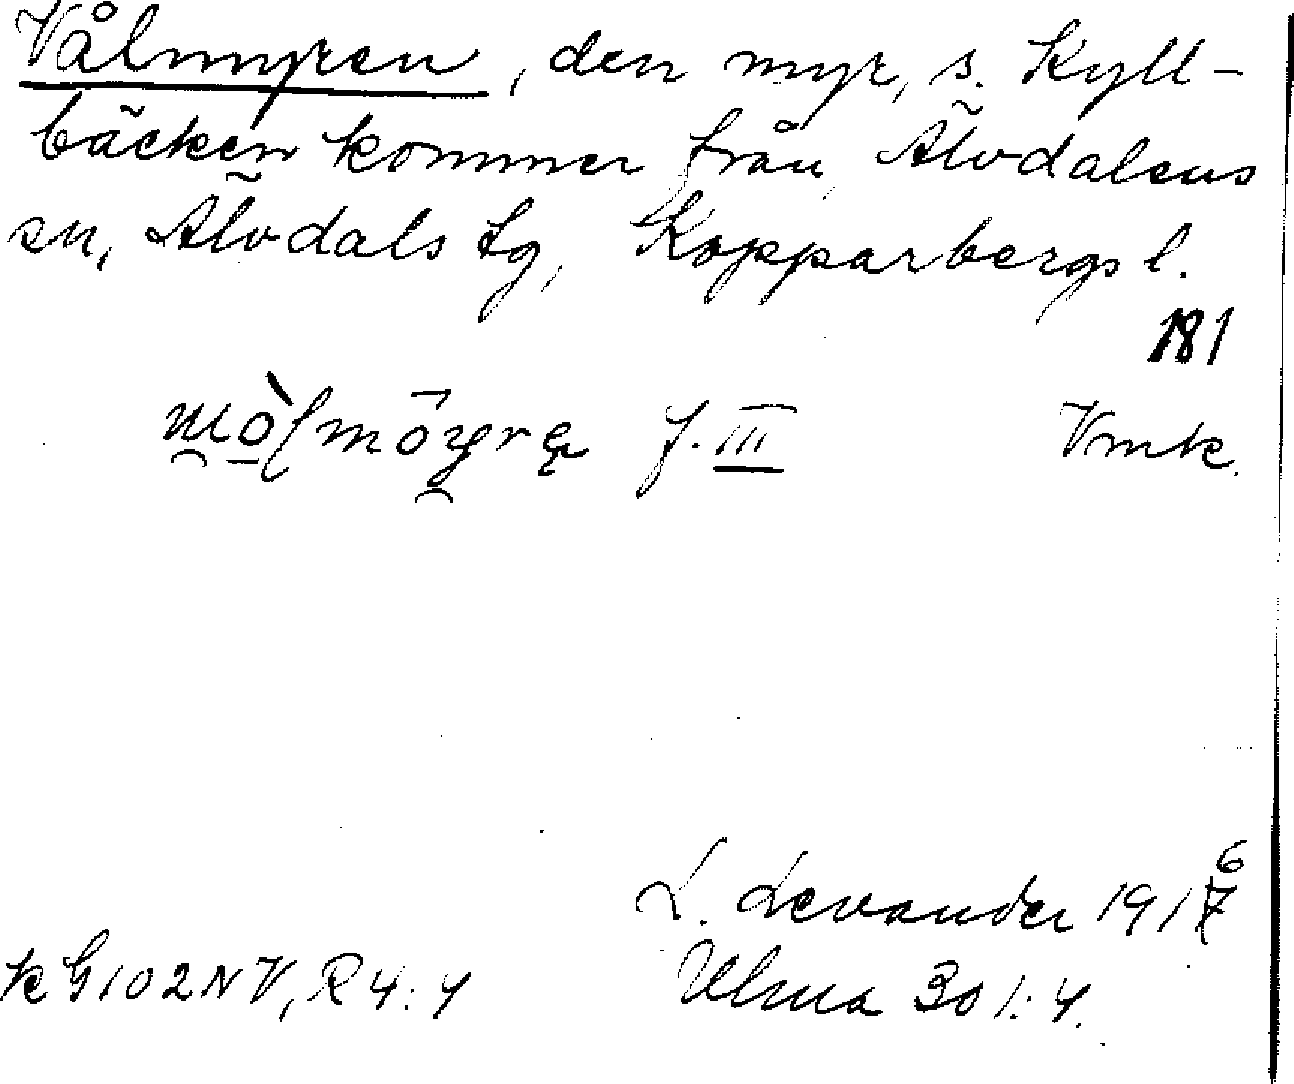 Vålmyren, den myr, s. Kyll-
bäcken kommer från, Älvdalens
sn, Älvdals tg, Kopparbergs l.
181
f. III Vmk.
6
L. Levander 1917
k G102NV, R4:4 Ulma 301:4.